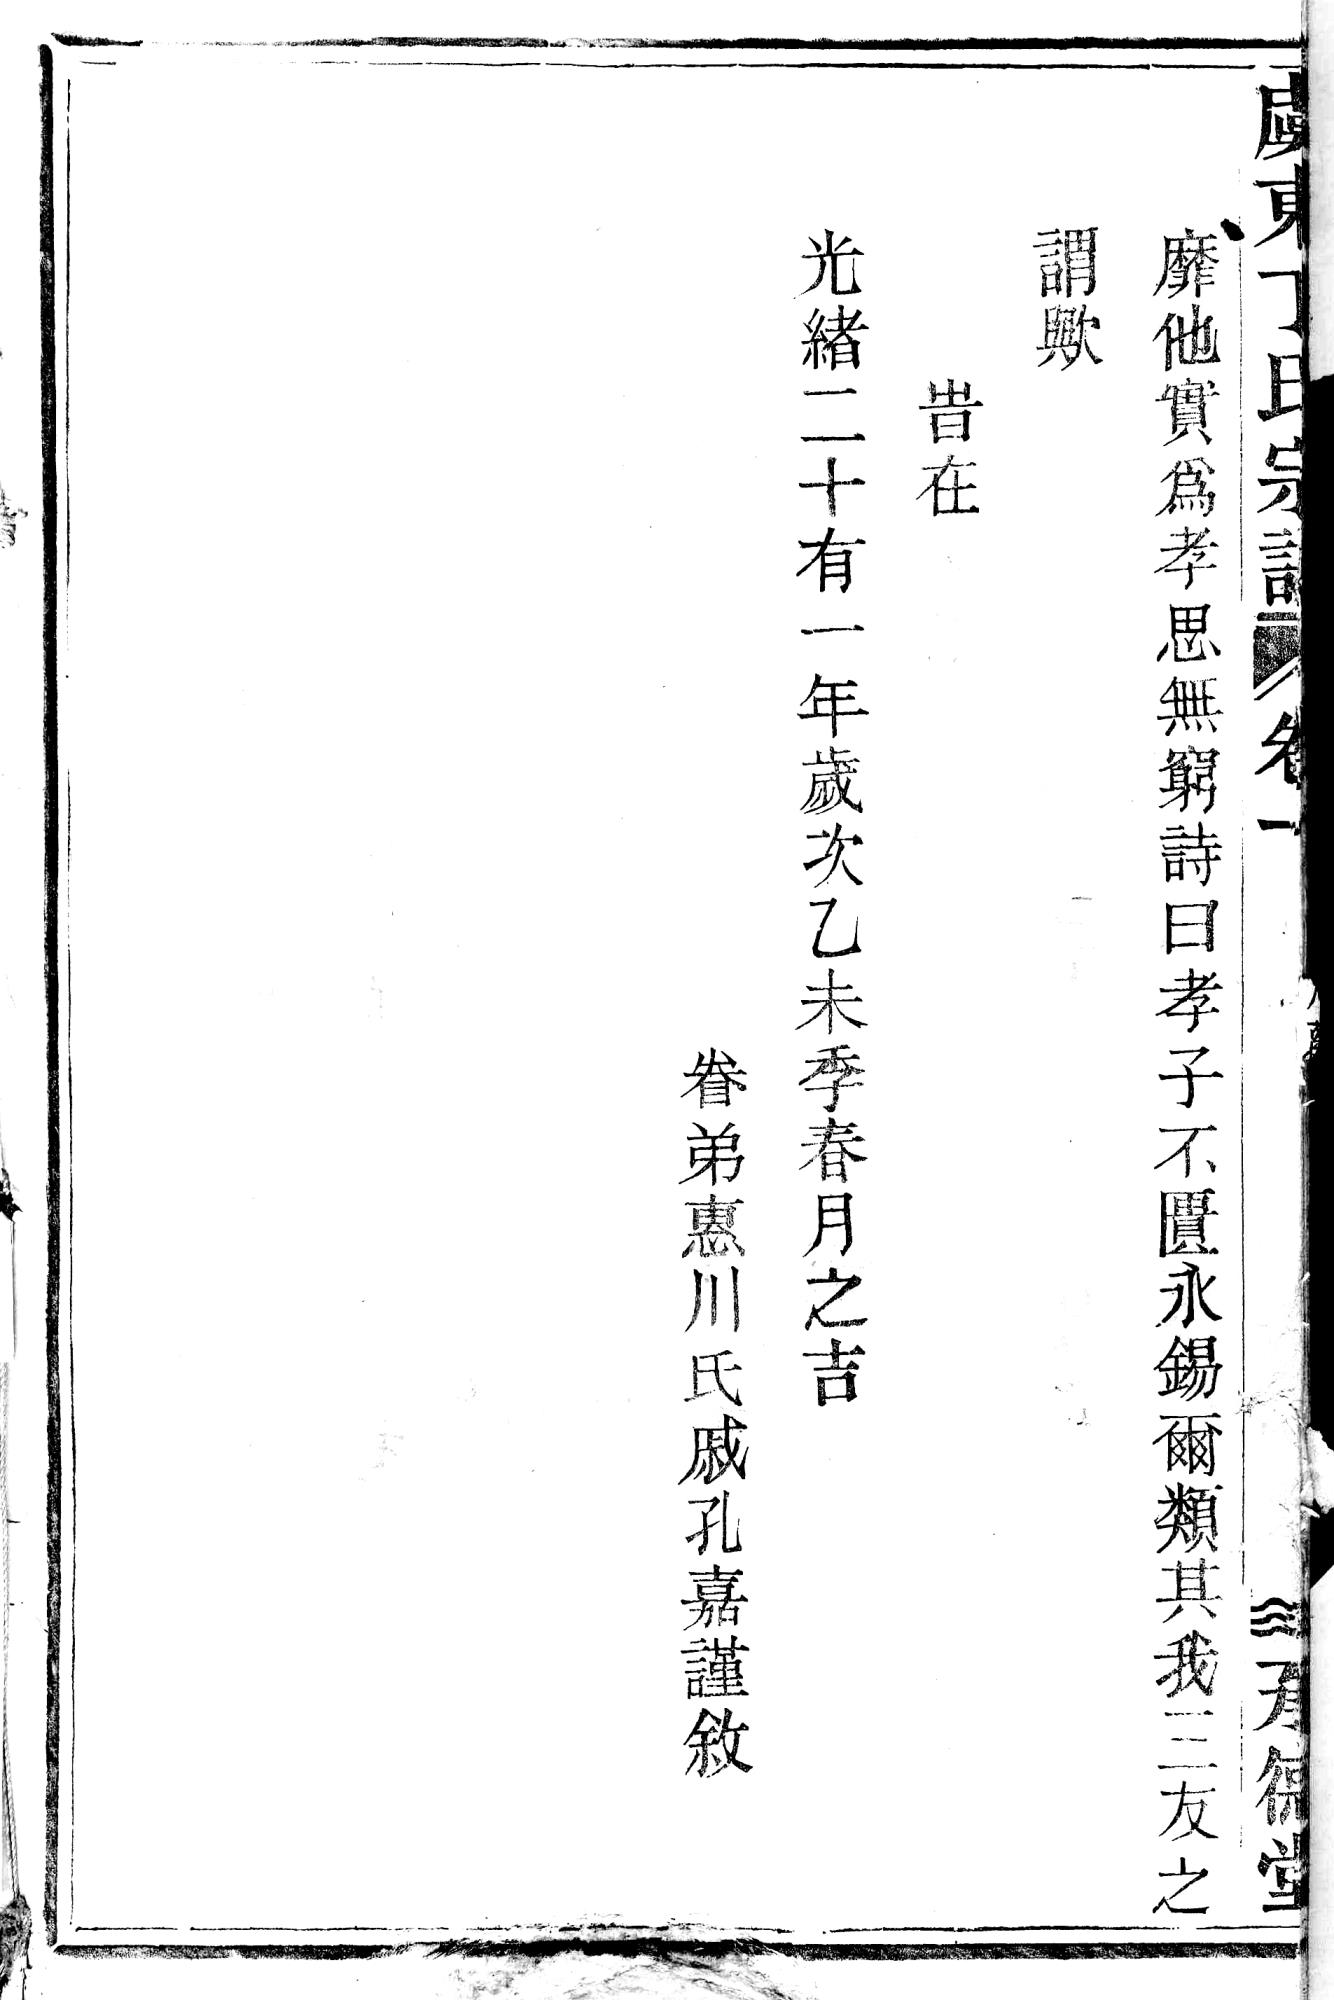 虞東丁氏宗譜 卷一 承德堂
靡他實爲孝思無窮詩曰孝子不匱永錫爾類其我三友之
謂歟
旹在
光緒二十有一年歲次乙未季春月之吉
眷弟惠川氏戚孔嘉謹敘